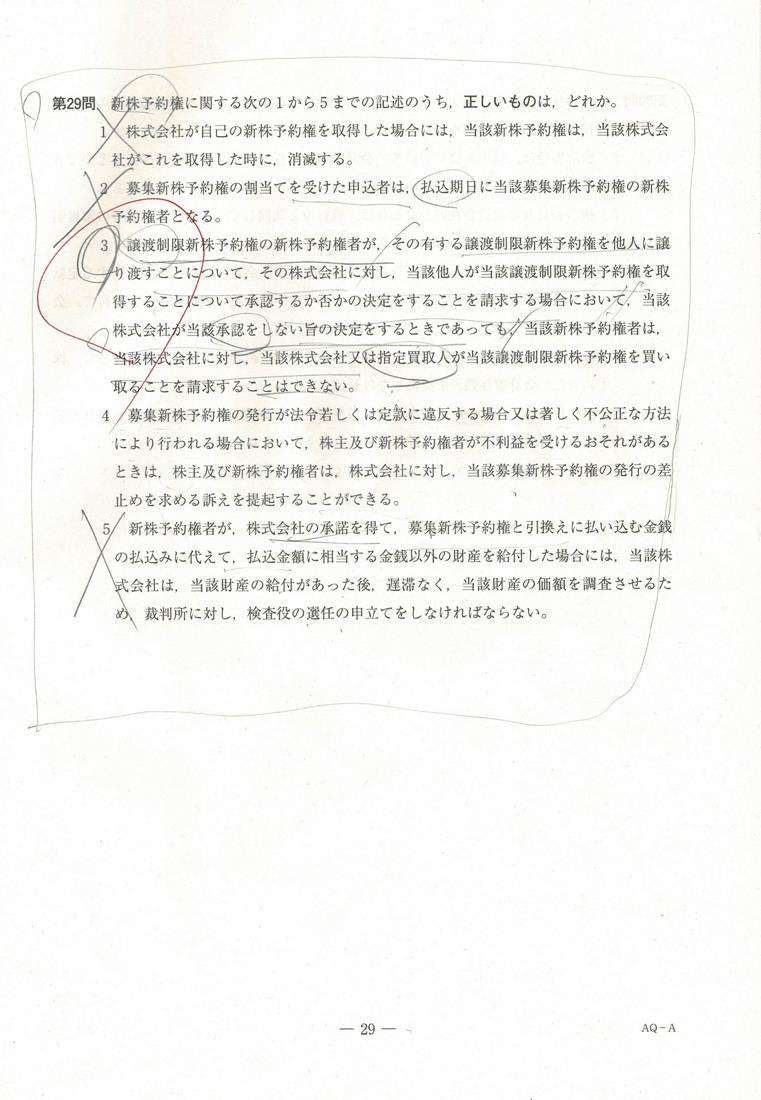 第29問 新株予約権に関する次の1から5までの記述のうち，正しいものは，どれか。
1 株式会社が自己の新株予約権を取得した場合には，当該新株予約権は，当該株式会
社がこれを取得した時に，消滅する。
2 募集新株予約権の割当てを受けた申込者は，払込期日に当該募集新株予約権の新株
予約権者となる。
3 譲渡制限新株予約権の新株予約権者が，その有する譲渡制限新株予約権を他人に譲
り渡すことについて，その株式会社に対し，当該他人が当該譲渡制限新株予約権を取
得することについて承認するか否かの決定をすることを請求する場合において，当該
株式会社が当該承認をしない旨の決定をするときであっても，当該新株予約権者は，
当該株式会社に対し，当該株式会社又は指定買取人が当該譲渡制限新株予約権を買い
取ることを請求することはできない。
4 募集新株予約権の発行が法令若しくは定款に違反する場合又は著しく不公正な方法
により行われる場合において，株主及び新株予約権者が不利益を受けるおそれがある
ときは，株主及び新株予約権者は，株式会社に対し，当該募集新株予約権の発行の差
止めを求める訴えを提起することができる。
5 新株予約権者が，株式会社の承諾を得て，募集新株予約権と引換えに払い込む金銭
の払込みに代えて，払込金額に相当する金銭以外の財産を給付した場合には，当該株
式会社は，当該財産の給付があった後，遅滞なく，当該財産の価額を調査させるた
め，裁判所に対し，検査役の選任の申立てをしなければならない。
― 29 ―
AQ－A